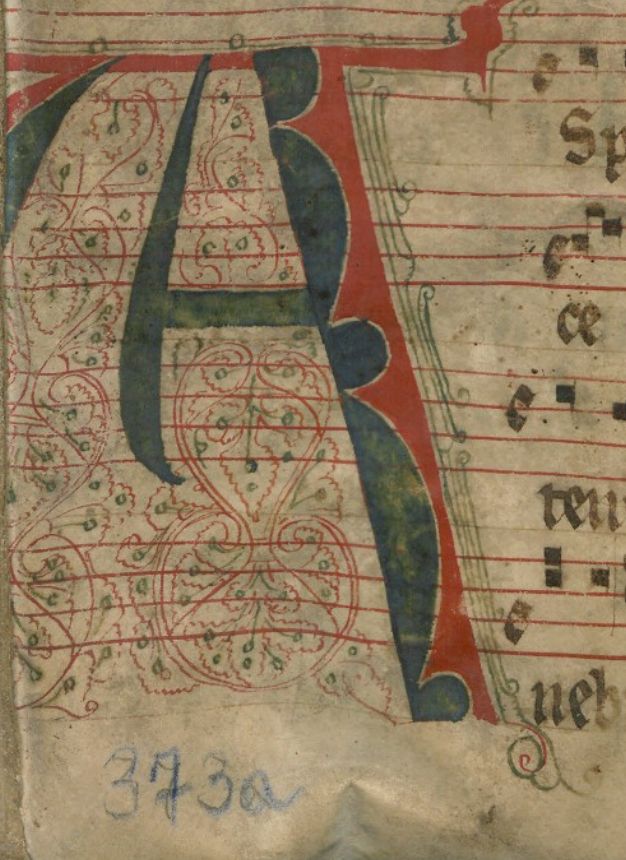 A
Sp
ce
ten
neb
373a